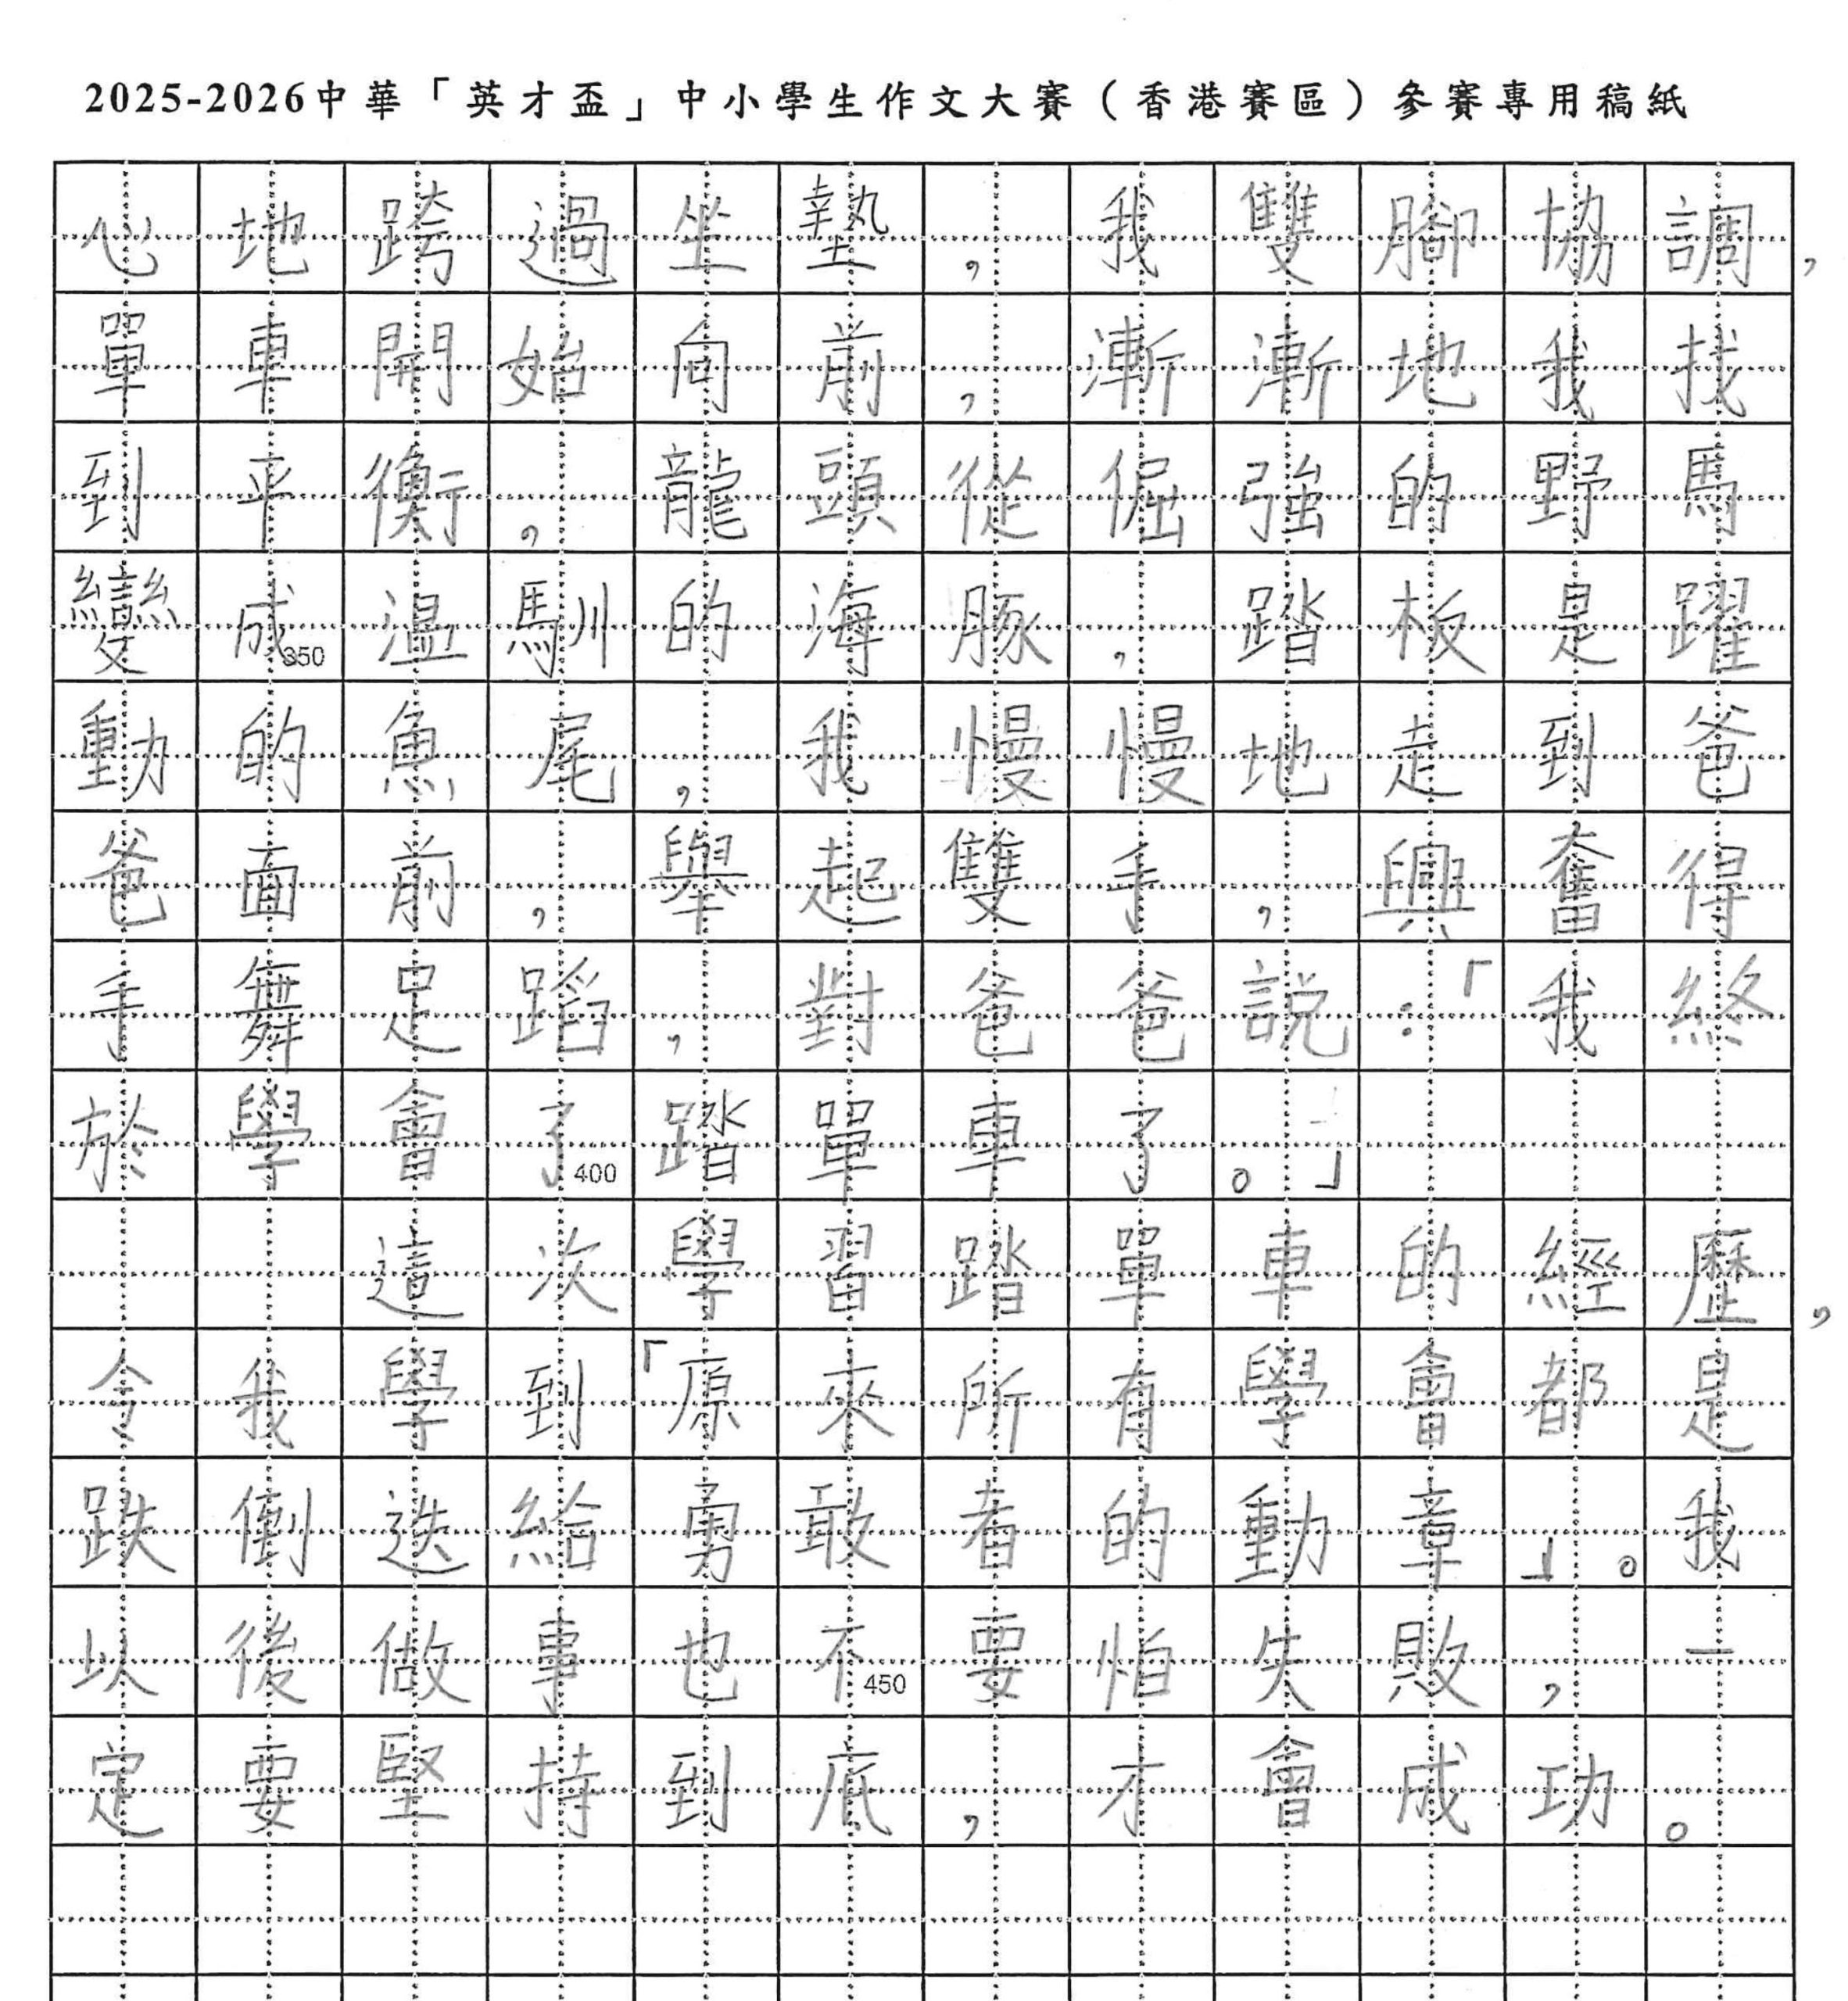 2025-2026中華「英才盃」中小學生作文大賽（香港賽區）參賽專用稿紙
心地跨過坐墊，我雙腳協調，
單車開始向前，漸漸地我找
到平衡，龍頭從倔強的野馬
變成溫馴的海豚，踏板是躍
350
動的魚尾，我慢慢地走到爸
爸面前，舉起雙手，興奮得
手舞足蹈，對爸爸說：「我終
於學會了踏單車了。」
400
這次學習踏單車的經歷，
令我學到「原來所有學會都是
跌倒迭給勇敢者的動章」。我
以後做事也不要怕失敗，一
450
定要堅持到底，才會成功。